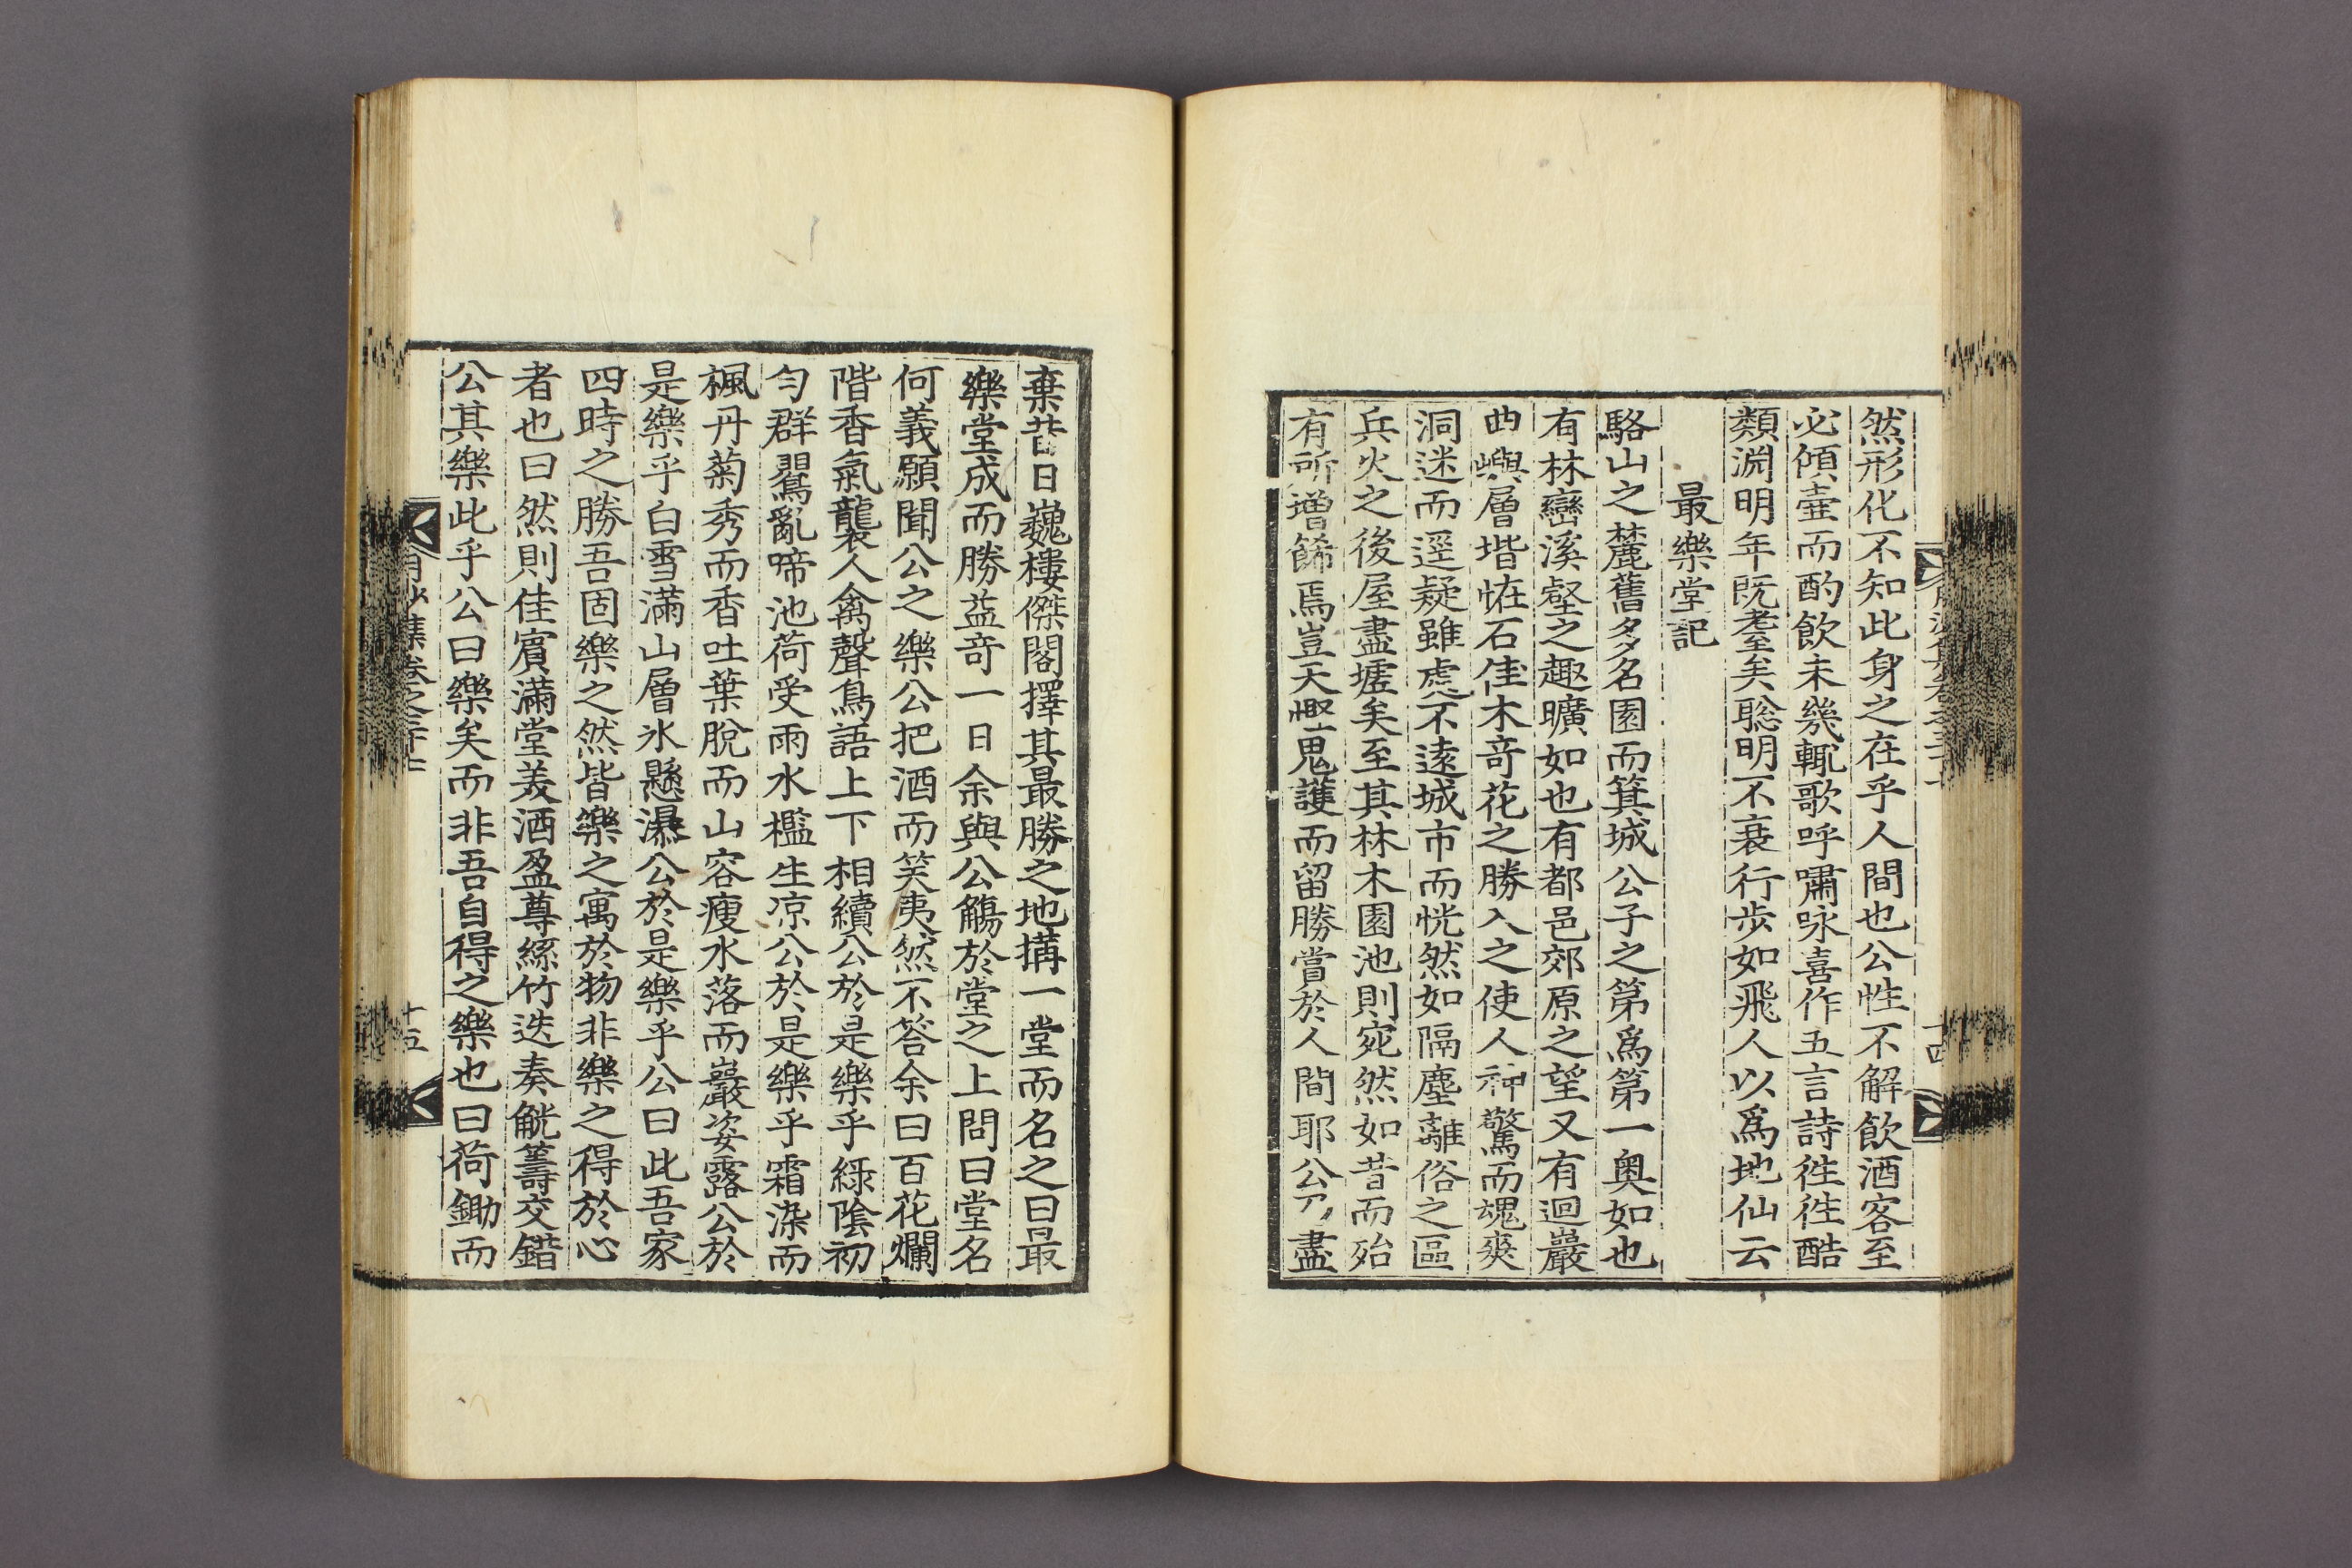 然形化不知此身之在乎人間也公性不解飮酒客至
必傾壺而酌飮未幾輒歌呼嘯咏喜作五言詩徃徃酷
類淵明年既耄矣聡明不衰行步如飛人以爲地仙云
最樂堂記
駱山之麓舊多名園而箕城公子之第爲第一奥如也
有林巒溪壑之趣曠如也有都邑郊原之望又有迴巖
曲嶼層堦恠石佳木奇花之勝入之使人神驚而魂爽
洞迷而逕疑雖處不遠城市而恍然如隔塵離俗之區
兵火之後屋盡墟矣至其林木園池則宛然如昔而殆
有所增餙焉豈天慳鬼護而留勝賞於人間耶公乃盡
棄昔日巍樓傑閣擇其最勝之地搆一堂而名之曰最
樂堂成而勝益奇一日余與公觴於堂之上問曰堂名
何義願聞公之樂公把酒而笑夷然不答余曰百花爛
階香氣襲人禽聲鳥語上下相續公於是樂乎綠陰初
勻群鸎亂啼池荷受雨水檻生凉公於是樂乎霜染而
楓丹菊秀而香吐葉脫而山容瘦水落而巖姿露公於
是樂乎白雪滿山層氷懸瀑公於是樂乎公曰此吾家
四時之勝吾固樂之然皆樂之寓於物非樂之得於心
者也曰然則佳賓滿堂美酒盈尊絲竹迭奏觥籌交錯
公其樂此乎公曰樂矣而非吾自得之樂也曰荷鋤而
月沙集卷之三十七
十五